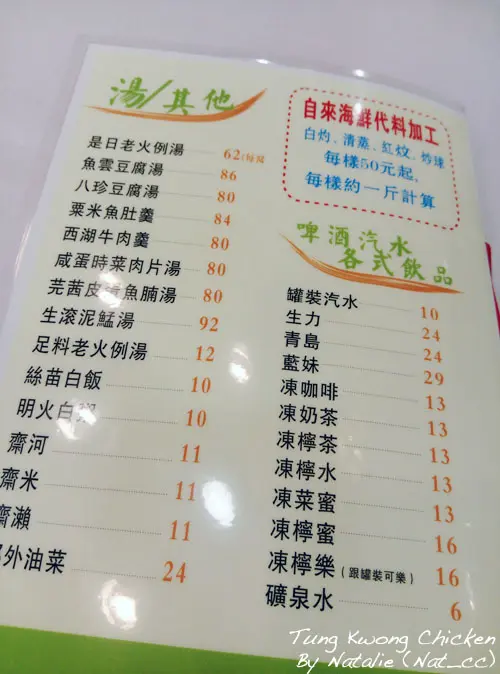 湯/其他
是日老火例湯 62
魚雲豆腐湯 86
八珍豆腐湯 80
粟米魚肚羹 84
西湖牛肉羹 80
咸蛋時菜肉片湯 80
芫茜皮蛋魚腩湯 80
生滾泥鯭湯 92
足料老火例湯 12
絲苗白飯 10
明火白粥 10
齋河 11
齋米 11
齋瀨 11
外油菜 24
自來海鮮代料加工
白灼、清蒸、紅炆、炒球
每樣50元起,
每樣約一斤計算
啤酒汽水
各式飲品
罐裝汽水 10
生力 24
青島 24
藍妹 29
凍咖啡 13
凍奶茶 13
凍檸茶 13
凍檸水 13
凍菜蜜 13
凍檸蜜 16
凍檸樂(跟罐裝可樂) 16
礦泉水 6
Tung Kwong Chicken
By Natalie (Nat_cc)